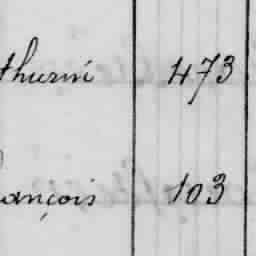 thurin 473
ançois 103